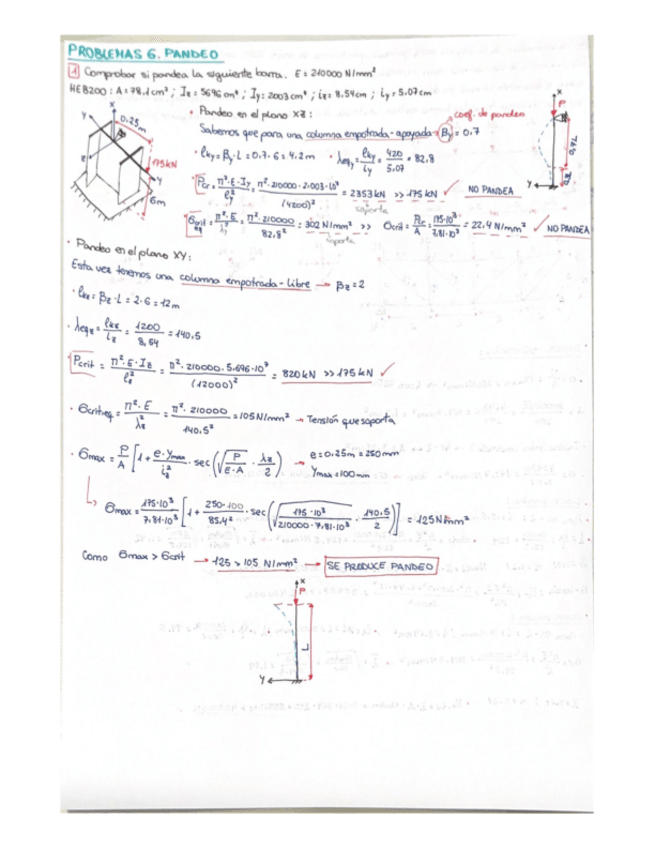 PROBLEMAS 6. PANDEO
1 Comprobar si pandea la siguiente barra. E = 210000 N/mm²
HEB200 : A = 78.1 cm² ; Iz = 5696 cm⁴ ; Iy = 2003 cm⁴ ; iz = 8.54 cm ; iy = 5.07 cm
X
Y
Z
0.25m
175 kN
Y
6m
• Pandeo en el plano XZ :
coef. de pandeo
Sabemos que para una columna empotrada - apoyada → βy = 0.7
• lky = βy · L = 0.7 · 6 = 4.2 m • λeqy = lky/iy = 420/5.07 = 82.8
• Pcr = π²·E·Iy/ly² = π²·210000·2.003·10⁷/(4200)² = 2353 kN >> 175 kN ✓ NO PANDEA
soporta
• σcrit eq = π²·E/λ² = π²·210000/82.8² = 302 N/mm² >> σcrit = Pcr/A = 175·10³/7.81·10³ = 22.4 N/mm² ✓ NO PANDEA
soporta
x
P
Y
• Pandeo en el plano XY :
Esta vez tenemos una columna empotrada - libre → βz = 2
• lkz = βz · L = 2 · 6 = 12 m
• λeqz = lkz/iz = 1200/8,54 = 140.5
• Pcrit = π²·E·Iz/lz² = π²·210000·5.696·10⁷/(12000)² = 820 kN >> 175 kN ✓
• σcriteq = π²·E/λz² = π²·210000/140.5² = 105 N/mm² → Tensión que soporta
• σmax = P/A [1 + e·ymax/iz² · sec (√(P/E·A) · λz/2)] → e = 0.25m = 250 mm
ymax = 100 mm
↳ σmax = 175·10³/7.81·10³ [1 + 250·100/85.4² · sec (√(175·10³/210000·7.81·10³) · 140.5/2)] = 125 N/mm²
Como σmax > σcrit → 125 > 105 N/mm² → SE PRODUCE PANDEO
x
P
L
Y